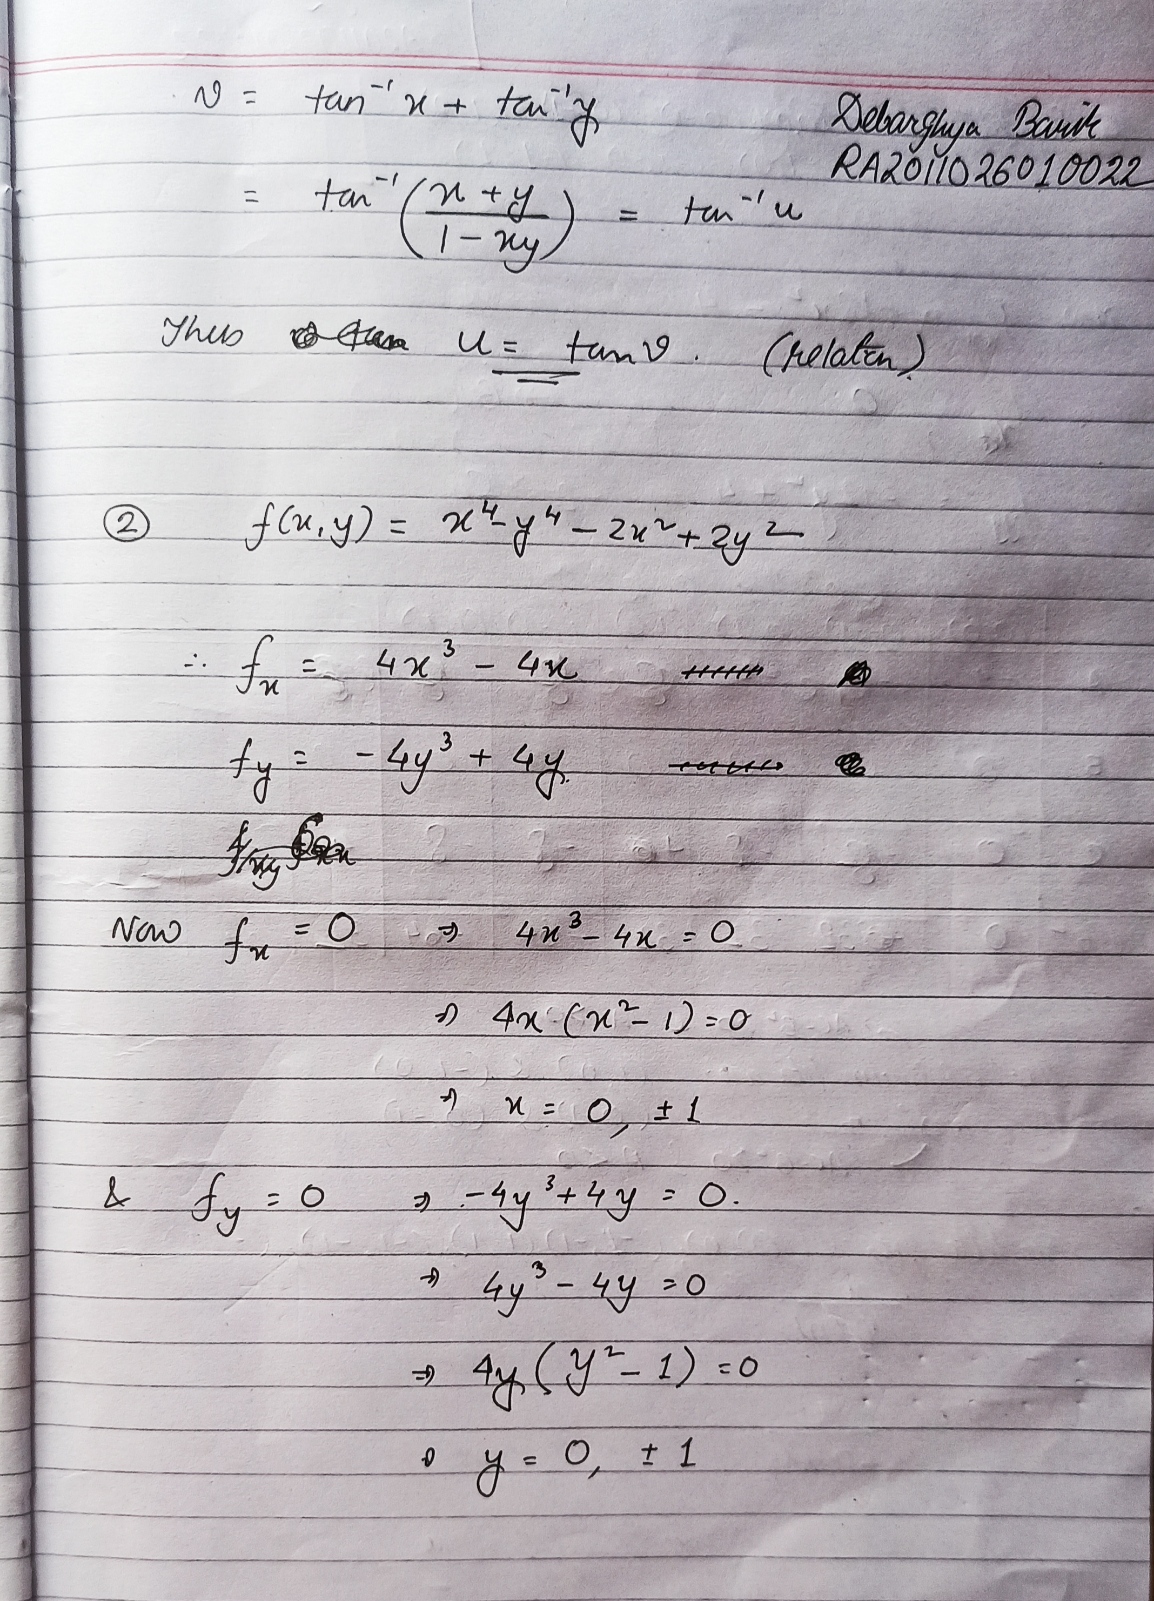 v = tan⁻¹x + tan⁻¹y
Debarghya Barik
RA2011026010022
= tan⁻¹ ((x + y)/(1 - xy)) = tan⁻¹u
Thus u = tan v. (relatn)
② f(x,y) = x⁴ - y⁴ - 2x² + 2y²
∴ fₓ = 4x³ - 4x
f_y = -4y³ + 4y.
Now fₓ = 0 ⇒ 4x³ - 4x = 0
⇒ 4x (x² - 1) = 0
⇒ x = 0, ± 1
& f_y = 0 ⇒ -4y³ + 4y = 0.
⇒ 4y³ - 4y = 0
⇒ 4y (y² - 1) = 0
⇒ y = 0, ± 1